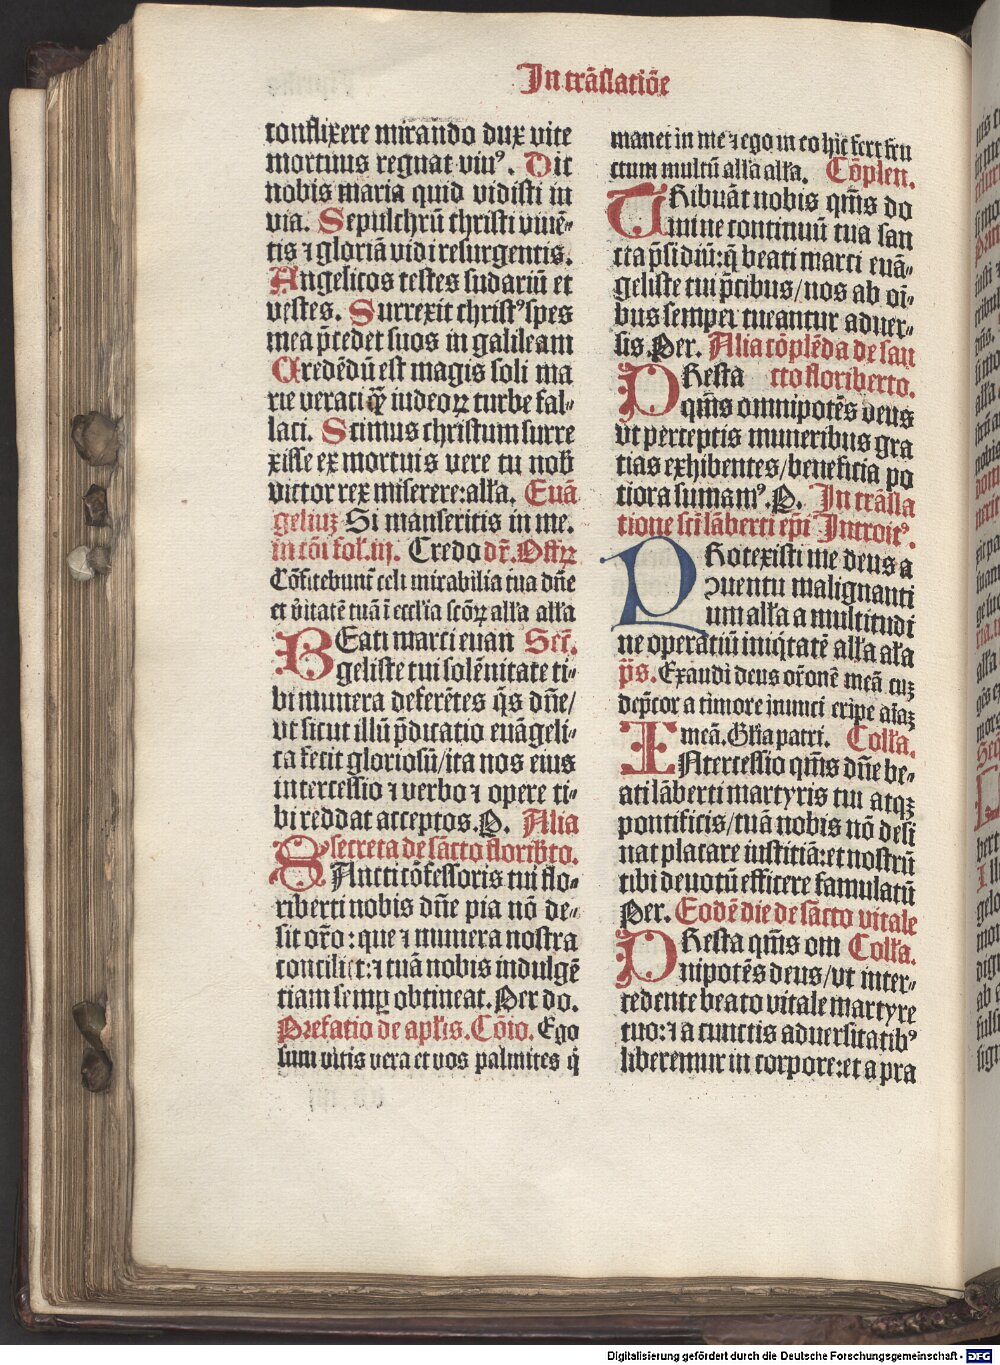 In trãſlatiõe
conflixere mirando dux vite
mortuus regnat viuꝰ. Dic
nobis maria quid vidiſti in
via. Sepulchrũ chriſti viuẽ⸗
tis ⁊ gloriã vidi reſurgentis.
Angelicos teſtes ſudariũ et
veſtes. Surrexit chriſtꝰ ſpes
mea p̄cedet ſuos in galileam
Credẽdũ eſt magis ſoli ma
rie veraci ꝙ̄ iudeoꝝ turbe fal⸗
laci. Scimus chriſtum ſurre
xiſſe ex mortuis vere tu nob̄
victor rex miſerere: alľa. Euã
geliuꝫ Si manſeritis in me.
in cõi foľ. iij. Credo dr̄. Offꝝ
Cõfitebunt̄ celi mirabilia tua dñe
et v̓itatẽ tuã ĩ eccľia ſcõꝝ alľa alľa
BEati marci euan Secr̄.
geliſte tui ſolẽnitate ti⸗
bi munera deferẽtes q̄s dñe/
vt ſicut illũ p̄dicatio euãgeli⸗
ca fecit glorioſũ/ita nos eius
interceſſio ⁊ verbo ⁊ opere ti⸗
bi reddat acceptos. P. Alia
ſecreta de ſãcto floriḃto.
SAncti cõfeſſoris tui flo⸗
riberti nobis dñe pia nõ de⸗
ſit or̃o: que ⁊ munera noſtra
conciliet: ⁊ tuã nobis indulgẽ
tiam ſemꝑ obtineat. Per do.
Prefatio de apľis. Cõio. Ego
ſum vitis vera et vos palmites q̇
manet in me ⁊ ego in eo hic fert fru
ctum multũ alľa alľa. Cõplen.
TRibuãt nobis qm̃s do
mine continuũ tua ſan
cta p̄ſidiũ: q̄ beati marci euã⸗
geliſte tui p̄cibus/nos ab oĩ⸗
bus ſemper tueantur aduer⸗
ſis. Per. Alia cõplẽda de ſan
PReſta cto floriberto.
qm̃s omnipotẽs deus
vt perceptis muneribus gra
tias exhibentes/beneficia po
tiora ſumamꝰ. P. In trãſla
tione ſcĩ lãberti ep̃i Introitꝰ.
PRotexiſti me deus a
ↄuentu malignanti
um alľa a multitudi
ne operãtiũ iniq̇tatẽ alľa aľa
p̃s. Exaudi deus or̃onẽ meã cuꝫ
dep̃cor a timore inimici eripe aĩaꝫ
meã. Gľia patri. Colľa.
INterceſſio qm̃s dñe be⸗
ati lãberti martyris tui atqꝫ
pontificis/tuã nobis nõ deſi
nat placare iuſticiã: et noſtrũ
tibi deuotũ efficere famulatũ
Per. Eodẽ die de ſãcto vitale
PReſta qm̃s om Colľa.
nipotẽs deus/vt inter⸗
cedente beato vitale martyre
tuo: ⁊ a cunctis aduerſitatibꝰ
liberemur in corpore: et a pra
Digitalisierung gefördert durch die Deutsche Forschungsgemeinschaft - DFG